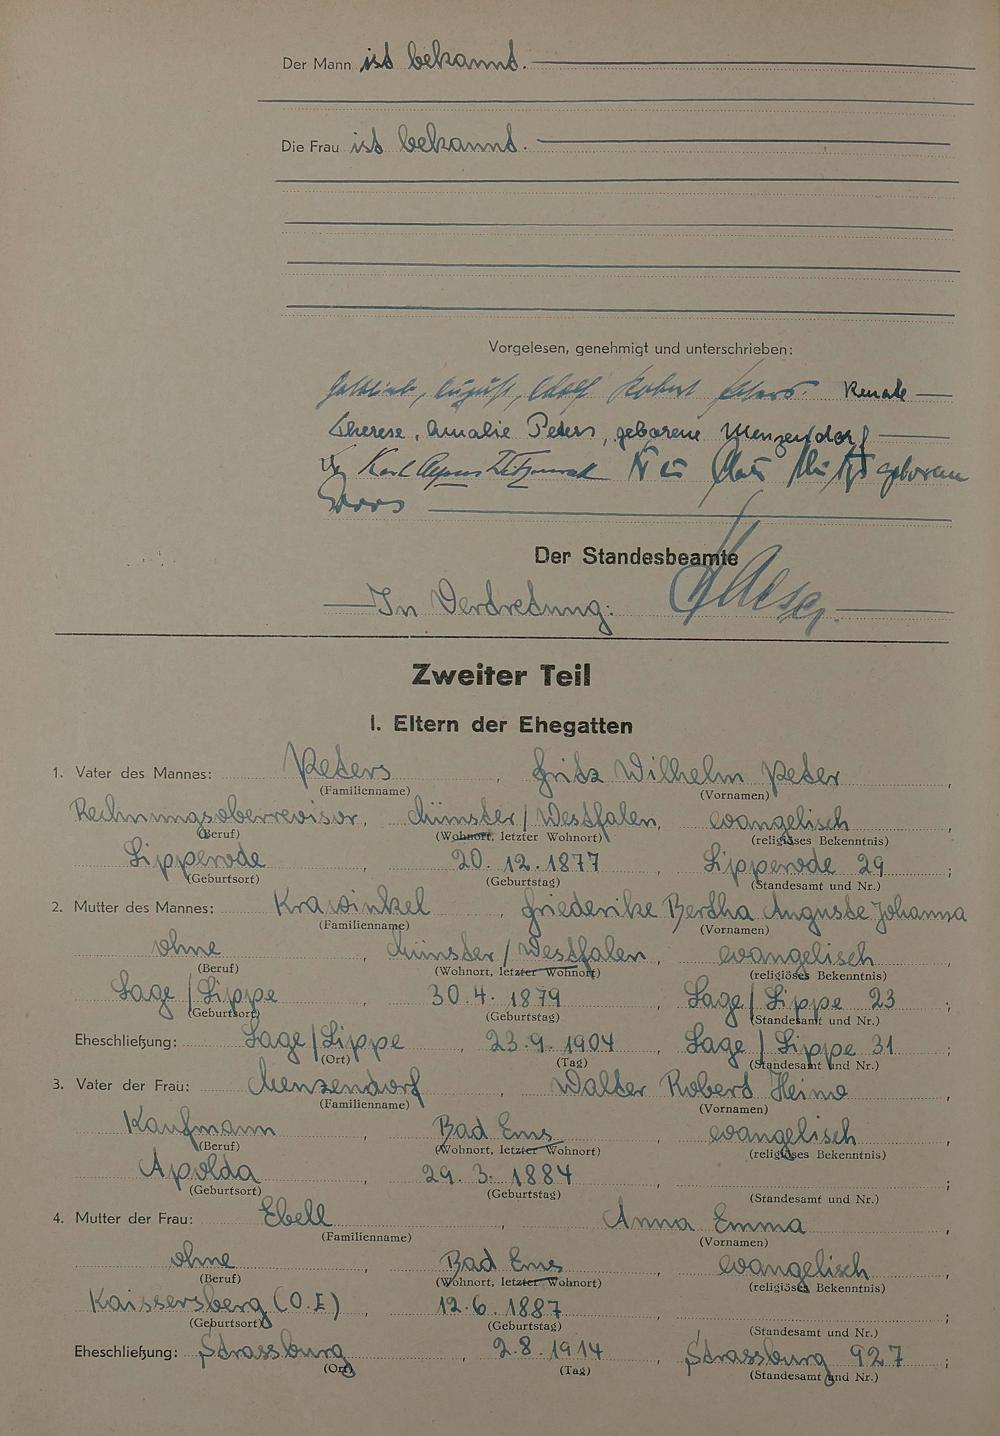 Der Mann ist bekannt.
Die Frau ist bekannt.
Vorgelesen, genehmigt und unterschrieben:
Gottlieb, August, Adolf Robert Peters. Renate
Therese, Amalie Peters, geborene Menzendorf
Karl geboren
Der Standesbeamte
In Vertretung:
Zweiter Teil
I. Eltern der Ehegatten
1. Vater des Mannes: Peters, Fritz Wilhelm Peter,
(Familienname) (Vornamen)
Rechnungsoberrevisor, Münster/Westfalen, evangelisch,
(Beruf) (Wohnort, letzter Wohnort) (religiöses Bekenntnis)
Lipperode, 20.12.1877, Lipperode 29;
(Geburtsort) (Geburtstag) (Standesamt und Nr.)
2. Mutter des Mannes: Krawinkel, Friederike Bertha Auguste Johanna
(Familienname) (Vornamen)
ohne, Münster/Westfalen, evangelisch,
(Beruf) (Wohnort, letzter Wohnort) (religiöses Bekenntnis)
Lage/Lippe, 30.4.1879, Lage/Lippe 23;
(Geburtsort) (Geburtstag) (Standesamt und Nr.)
Eheschließung: Lage/Lippe, 23.9.1904, Lage/Lippe 31;
(Ort) (Tag) (Standesamt und Nr.)
3. Vater der Frau: Menzendorf, Walter Robert Heino,
(Familienname) (Vornamen)
Kaufmann, Bad Ems, evangelisch,
(Beruf) (Wohnort, letzter Wohnort) (religiöses Bekenntnis)
Apolda, 29.3.1884, ;
(Geburtsort) (Geburtstag) (Standesamt und Nr.)
4. Mutter der Frau: Ebell, Anna Emma,
(Familienname) (Vornamen)
ohne, Bad Ems, evangelisch,
(Beruf) (Wohnort, letzter Wohnort) (religiöses Bekenntnis)
Kaissersberg (O.E), 12.6.1887, ;
(Geburtsort) (Geburtstag) (Standesamt und Nr.)
Eheschließung: Strassburg, 2.8.1914, Strassburg 927;
(Ort) (Tag) (Standesamt und Nr.)